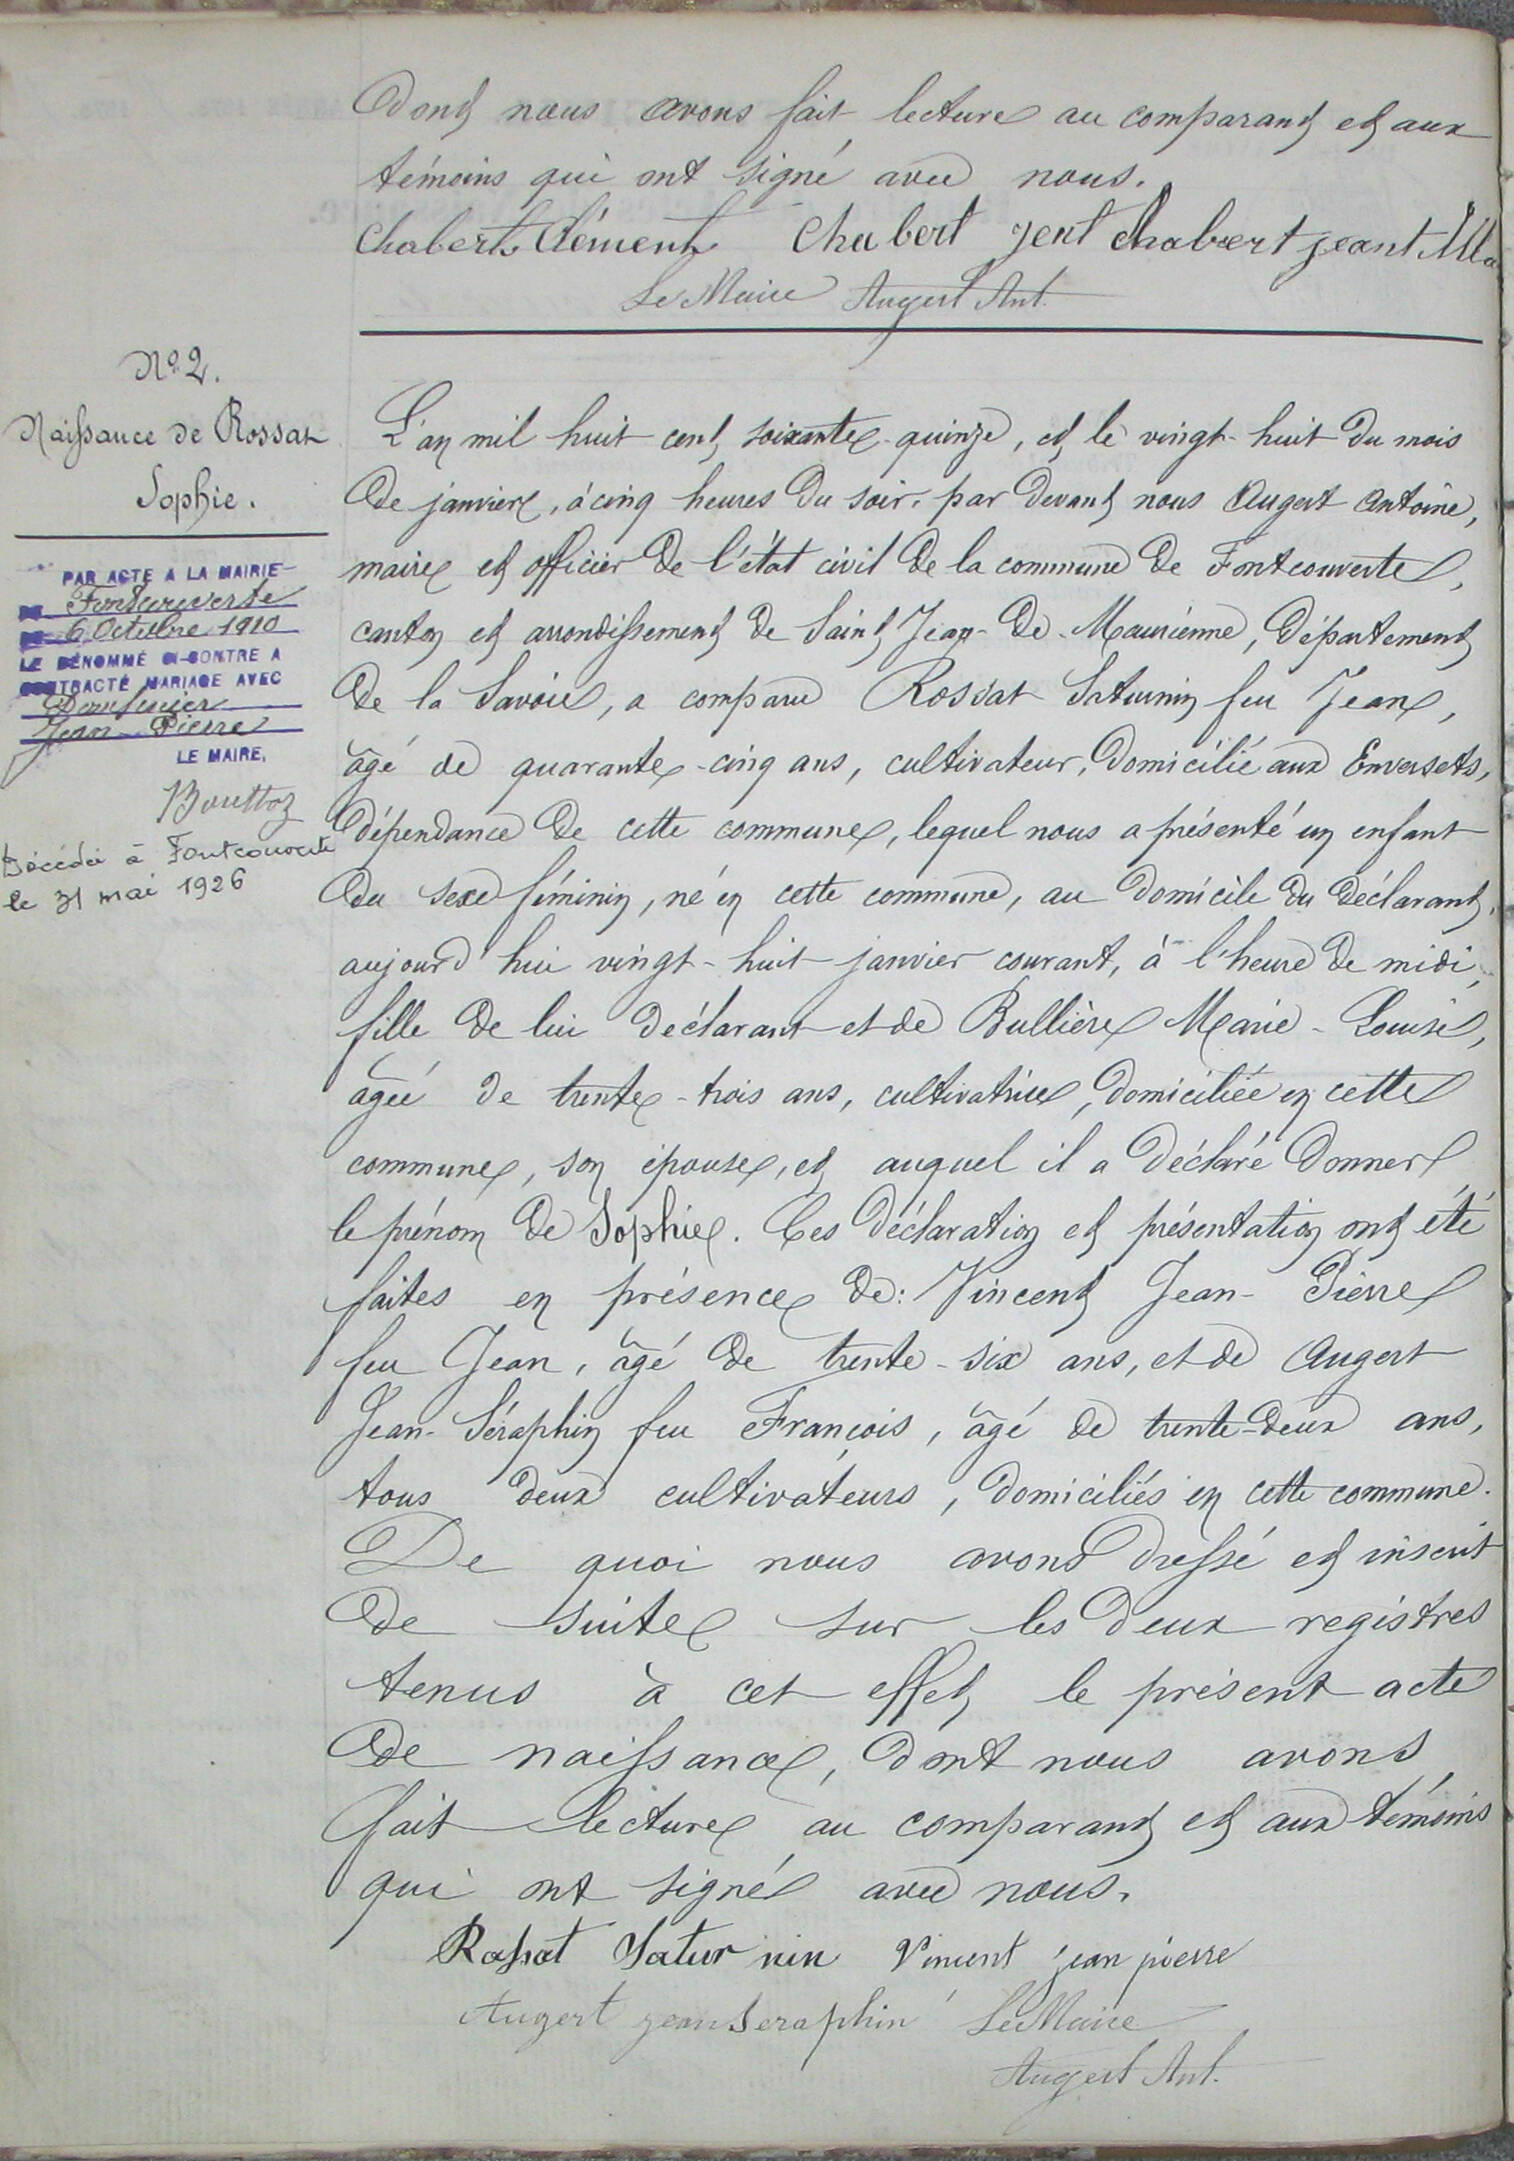 Dont nous avons fait lecture au comparant et aux
témoins qui ont signé avec nous.
Chabert Clément Chabert jent Chabert jeant
Le Maire Augert Ant.
N° 2.
Naissance de Rossat
Sophie.
PAR ACTE A LA MAIRIE
Fontcouverte
6 Octobre 1910
LE DÉNOMMÉ CI-CONTRE A
CONTRACTÉ MARIAGE AVEC
Jean Pierre
LE MAIRE,
Bouttaz
Décédée à Fontcouverte
le 31 mai 1926
L'an mil huit cent soixante-quinze, et le vingt-huit du mois
de janvier, à cinq heures du soir, par devant nous Augert Antoine,
maire et officier de l'état civil de la commune de Fontcouverte,
canton et arrondissement de Saint Jean-de-Maurienne, département
de la Savoie, a comparu Rossat Saturnin feu Jean,
âgé de quarante-cinq ans, cultivateur, domicilié aux Enversets,
dépendance de cette commune, lequel nous a présenté un enfant
du sexe féminin, né en cette commune, au domicile du déclarant,
aujourd'hui vingt-huit janvier courant, à l'heure de midi,
fille de lui déclarant et de Bullière Marie-Louise,
âgée de trente-trois ans, cultivatrice, domiciliée en cette
commune, son épouse, et auquel il a déclaré donner
le prénom de Sophie. Ces déclaration et présentation ont été
faites en présence de: Vincent Jean-Pierre
feu Jean, âgé de trente-six ans, et de Augert
Jean-Séraphin feu François, âgé de trente-deux ans,
tous deux cultivateurs, domiciliés en cette commune.
De quoi nous avons dressé et inscrit
de suite sur les deux registres
tenus à cet effet le présent acte
de naissance, dont nous avons
fait lecture au comparant et aux témoins
qui ont signé avec nous.
Rossat Satur nin Vincent jean pierre
Augert jean Seraphin Le Maire
Augert Ant.